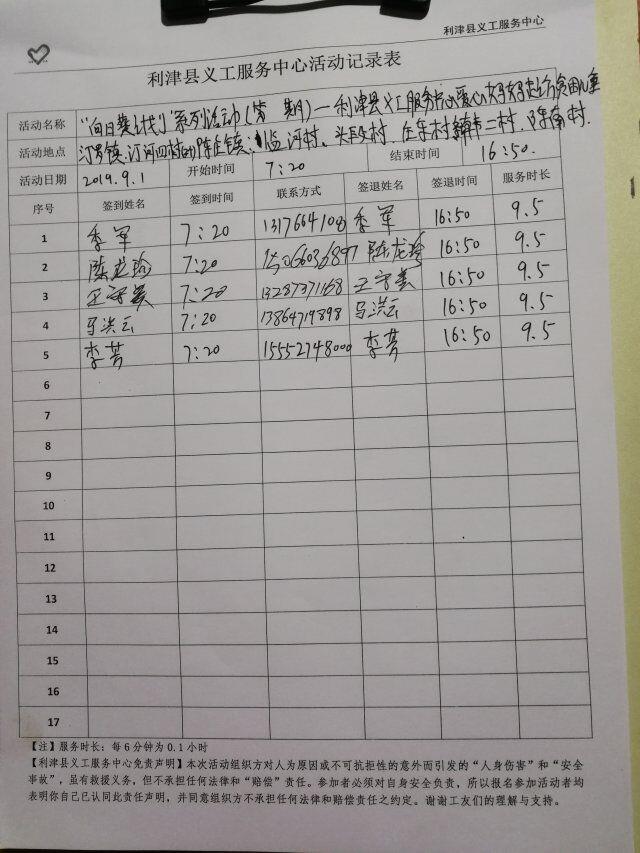 利津县义工服务中心
利津县义工服务中心活动记录表
活动名称 "向日葵计划"系列活动(第 期)—利津县义工服务中心爱心妈妈走访贫困儿童
活动地点 汀罗镇:汀河四村 陈庄镇: 临河村、头段村、庄东村 辅市一村、陈南村.
活动日期 2019.9.1 开始时间 7:20 结束时间 16:50.
序号 签到姓名 签到时间 联系方式 签退姓名 签退时间 服务时长
1 季军 7:20 1317664108 季军 16:50 9.5
2 陈龙玲 7:20 15066036897 陈龙玲 16:50 9.5
3 王守美 7:20 13287371168 王守美 16:50 9.5
4 马洪云 7:20 13864719898 马洪云 16:50 9.5
5 李芳 7:20 15552748000 李芳 16:50 9.5
6
7
8
9
10
11
12
13
14
15
16
17
【注】服务时长:每6分钟为0.1小时
【利津县义工服务中心免责声明】本次活动组织方对人为原因或不可抗拒性的意外而引发的"人身伤害"和"安全
事故",虽有救援义务,但不承担任何法律和"赔偿"责任。参加者必须对自身安全负责,所以报名参加活动者均
表明你自己已认同此责任声明,并同意组织方不承担任何法律和赔偿责任之约定。谢谢工友们的理解与支持。